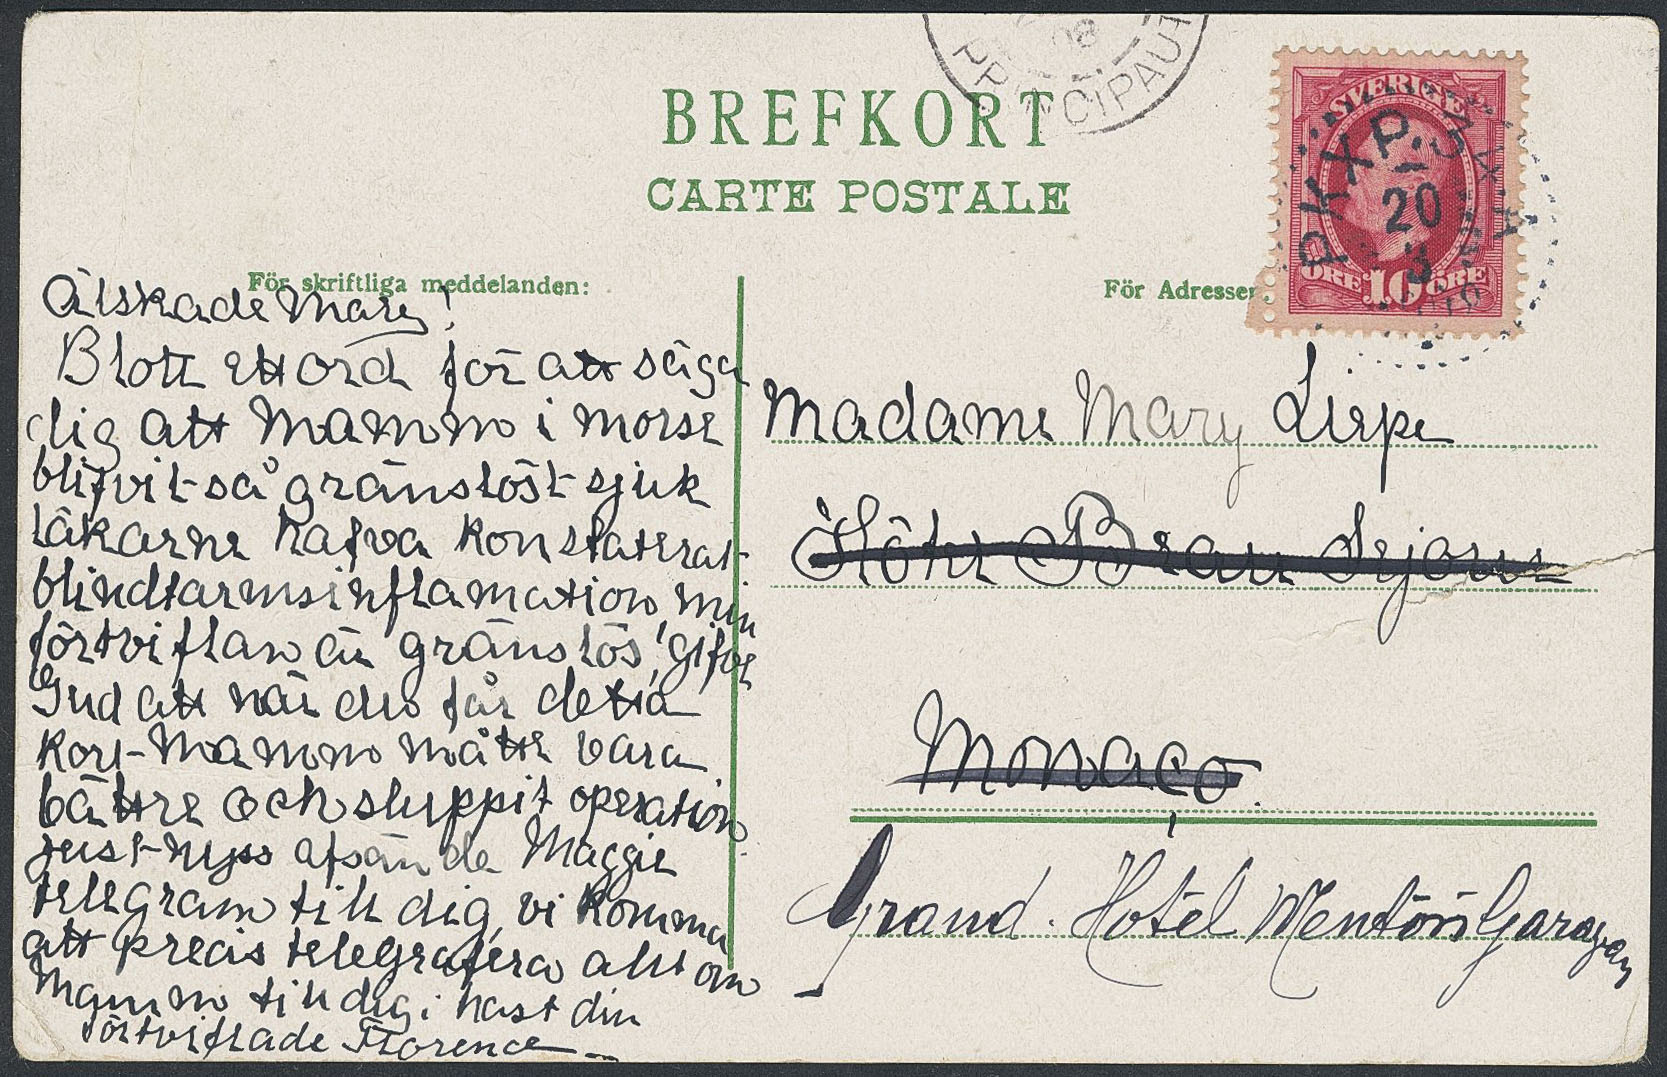 BREFKORT
CARTE POSTALE
PRINCIPAUT
08
SVERIGE
ÖRE 10 ÖRE
PKXP
20
3
För skriftliga meddelanden:
Älskade Mary!
Blott ett ord för att säga
dig att Mamma i morse
blifvit så gränslöst sjuk
läkarne hafva konstaterat
blindtarmsinflamation, min
förtviflan är gränslös! gifve
Gud att när du får detta
kort Mamma måtte vara
bättre och sluppit operation
just nyss afsände Maggie
telegram till dig, vi komma
att precis telegrafera allt om
Mamma till dig i hast din
förtviflade Florence
För Adressen
Madame Mary
Monaco
Grand Hotel Menton Garavan